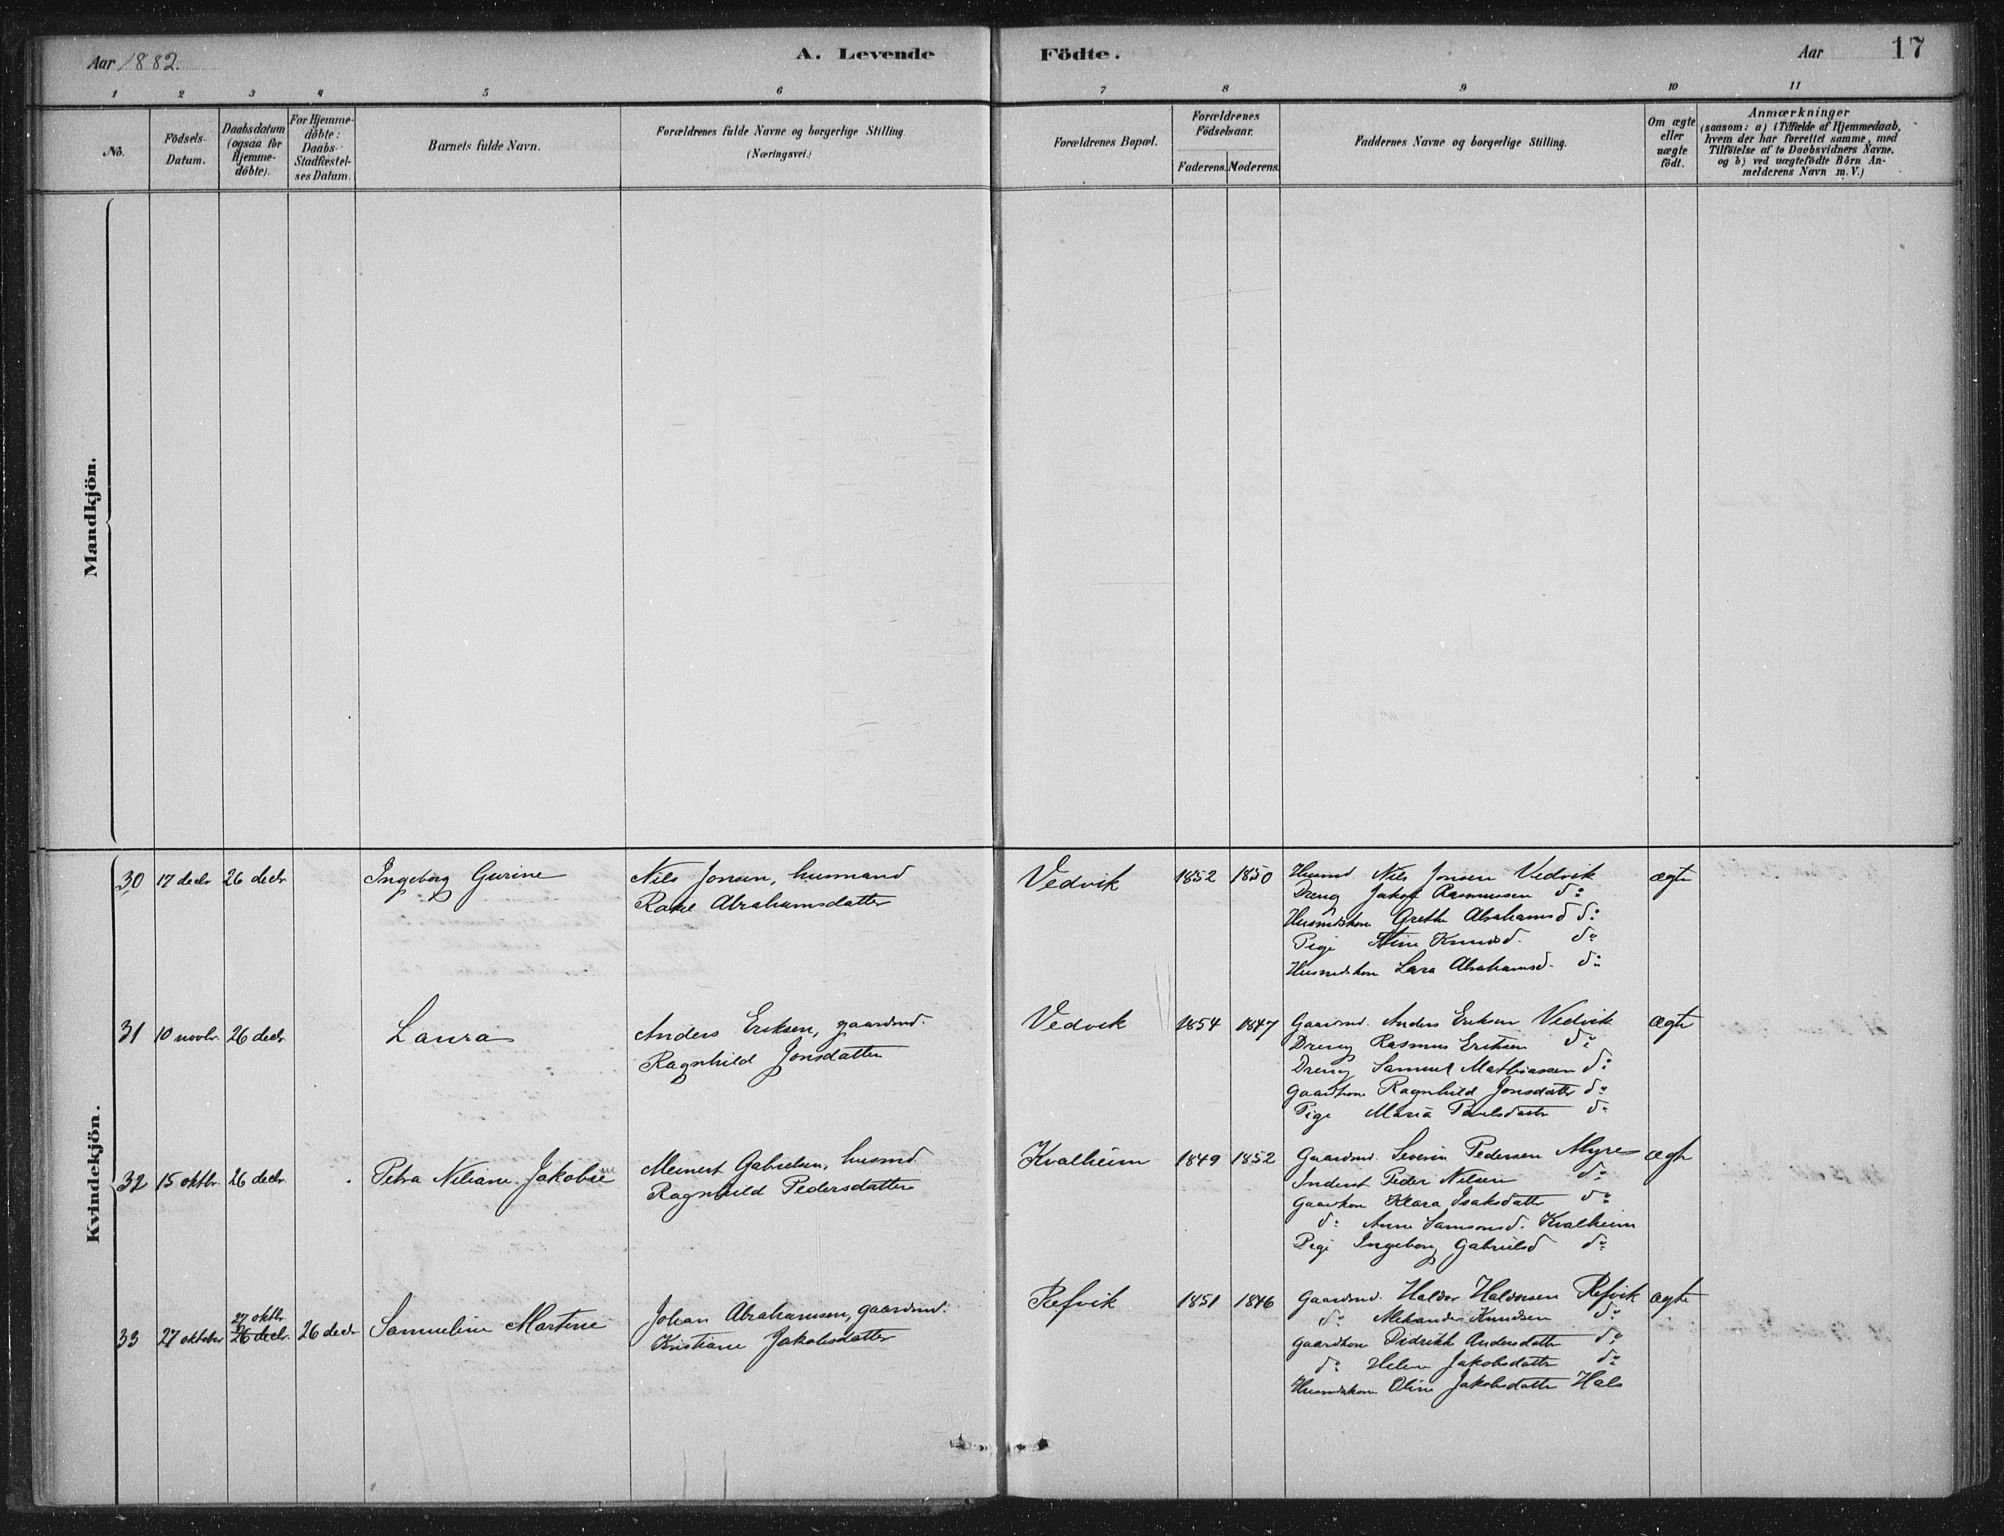 Aar 1882.
A. Levende
Födte.
Aar
17
1 2 3 4 5 6 7 8 9 10 11
No.
Födsels-
Datum.
Daabsdatum
(ogsaa for
Hjemme-
döbte).
For Hjemme-
döbte:
Daabs-
Stadfæstel-
ses Datum.
Barnets fulde Navn.
Forældrenes fulde Navne og borgerlige Stilling.
(Næringsvei.)
Forældrenes Bopæl.
Forældrenes
Födselsaar.
Faderens. Moderens.
Faddernes Navne og borgerlige Stilling.
Om ægte
eller
uægte
födt.
Anmærkninger
(saasom: a) i Tilfælde af Hjemmedaab,
hvem der har forrettet samme, med
Tilföielse af to Daabsvidners Navne,
og b) ved uægtefödte Börn An-
melderens Navn m. V.)
Mandkjön.
Kvindekjön.
30 17 decbr 26 decbr
Ingeborg Gurine
Nils Jonsen, husmand
Rakel Abrahamsdatter
Vedvik 1852 1850
Husmd Nils Jonsen Vedvik
Dreng Jakob Rasmussen do
Husmdskone Grethe Abrahamsd do
Pige Stine Knudsd. do
Husmdskone Lara Abrahamsd. do
ægte
31 10 novbr. 26 decbr
Laura
Anders Eriksen, gaardmd.
Ragnhild Jonsdatter
Vedvik 1854 1847
Gaardmd. Anders Eriksen Vedvik
Dreng Rasmus Eriksen do
Dreng Samuel Mathiassen do
Gaardkone Ragnhild Jonsdatter do
Pige Maria Paulsdatter do
ægte
32 15 oktbr. 26 decbr
Petra Niliane Jakobine
Meinert Gabrielsen, husmd
Ragnhild Pedersdatter
Kvalheim 1849 1852
Gaardmd. Severin Pedersen Myre
Inderst Peder Nilsen do
Gaardkone Klara Isaksdatter do
do Anne Samsonsd. Kvalheim
Pige Ingeborg Gabrielsd do
ægte
33 27 oktober
27 oktbr
26 decbr. 26 decbr
Samueline Martine
Johan Abrahamsen, gaardmd.
Kristiane Jakobsdatter
Refvik 1851 1846
Gaardmd. Haldor Haldorsen Refvik
do Alexander Knudsen do
Gaardkone Didrikke Andersdatter do
do Helene Jakobsdatter do
Husmdskone Oline Jakobsdatter Hals
ægte